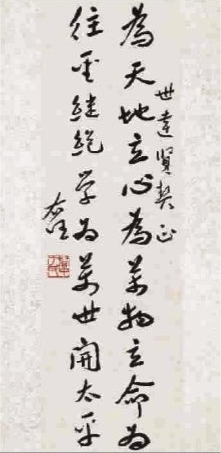 世達賢契正
為天地立心為萬物立命為
往聖継絕学為萬世開太平
右任